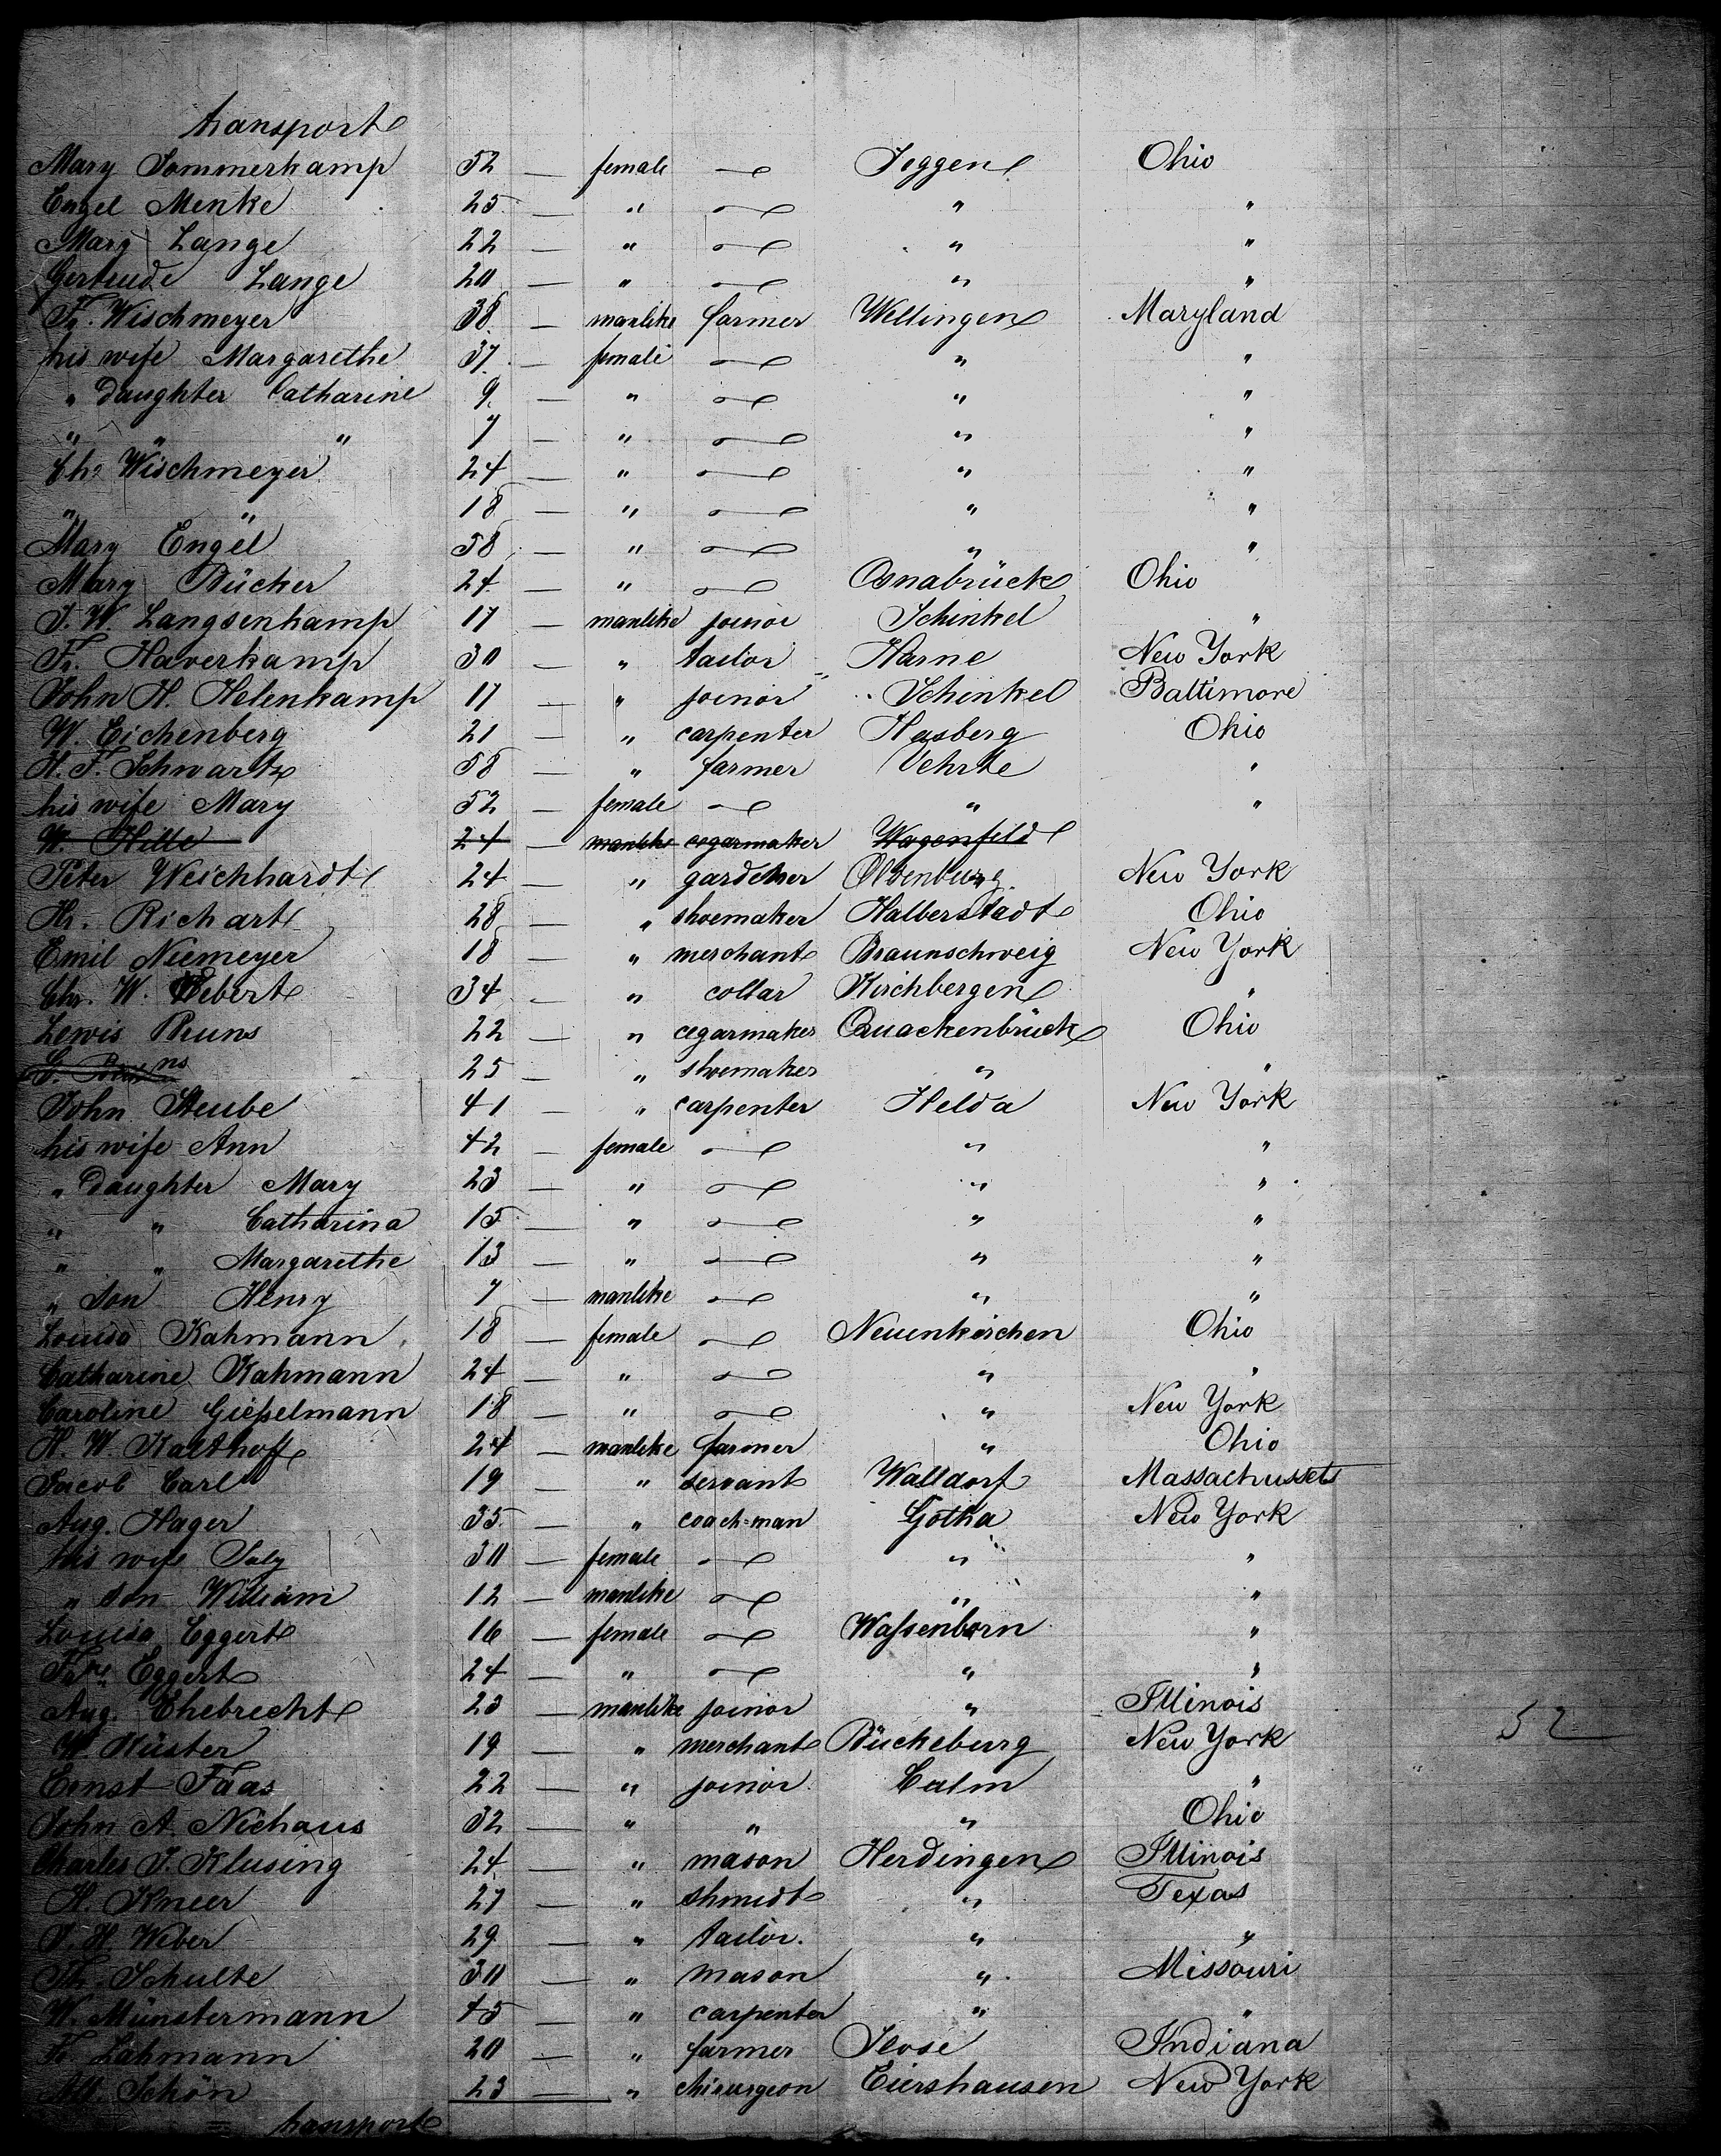 transport
Mary Sommerkamp 52 — female — Jeggen Ohio
Engel Menke 25 — " — " "
Mary Lange 22 — " — " "
Gertrude Lange 20 — " — " "
Fr. Wischmeyer 38 — manlike farmer Wellingen Maryland
his wife Margarethe 37 — female — " "
" daughter Catharine 9 — " — " "
" " " 7 — " — " "
Ch. Wischmeyer 24 — " — " "
" " 18 — " — " "
Mary Engel 58 — " — " "
Mary Bücker 24 — " — Osnabrück Ohio
J. W. Langsenkamp 17 — manlike joinor Schinkel "
Fr. Haverkamp 30 — " tailor Harne New York
John H. Helenkamp 17 — " joinor Schinkel Baltimore
W. Eichenberg 21 — " carpenter Hasberg Ohio
H. F. Schwartz 58 — " farmer Vehrte "
his wife Mary 52 — female — " "
W. Hille 24 — manlike cegarmaker Wagenfeld
Peter Weichhardt 24 — " gardener Oldenburg New York
Hr. Richart 28 — " shoemaker Halberstadt Ohio
Emil Niemeyer 18 — " merchant Braunschweig New York
Chr. W. Hebert 34 — " collar Kirchbergen "
Lewis Bruns 22 — " cegarmaker Quackenbrück Ohio
25 — " shoemaker " "
John Steube 41 — " carpenter Helda New York
his wife Ann 42 — female — " "
" daughter Mary 23 — " — " "
" " Catharina 15 — " — " "
" " Margarethe 13 — " — " "
" son Henry 7 — manlike — " "
Louisa Kahmann 18 — female — Neuenkirchen Ohio
Catharine Kahmann 24 — " — " "
Caroline Gieſselmann 18 — " — " New York
H. W. Kalthoff 24 — manlike farmer " Ohio
Jacob Carl 19 — " servant Walldorf Massachussets
Aug. Hager 35 — " coach-man Gotha New York
his wife July 30 — female — " "
" son William 12 — manlike — " "
Louisa Eggert 16 — female — Waſsenborn "
Eggert 24 — " — " "
Aug. Ehebrecht 23 — manlike joinor " Illinois
W. Hüster 19 — " merchant Bückeburg New York 52
Ernst Faas 22 — " joinor Calm "
John A. Niehaus 32 — " " " Ohio
Charles J. Klusing 24 — " mason Herdingen Illinois
H. Kneer 27 — " shmidt " Texas
J. H. Weber 29 — " tailor. " "
Th. Schulte 30 — " mason " Missouri
W. Münstermann 45 — " carpenter " "
Fr. Lahmann 20 — " farmer Ilose Indiana
Schön 23 — " chirurgeon Eiershausen New York
transport